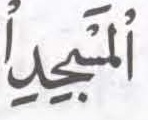 اْلمَسْجِدِ اْ